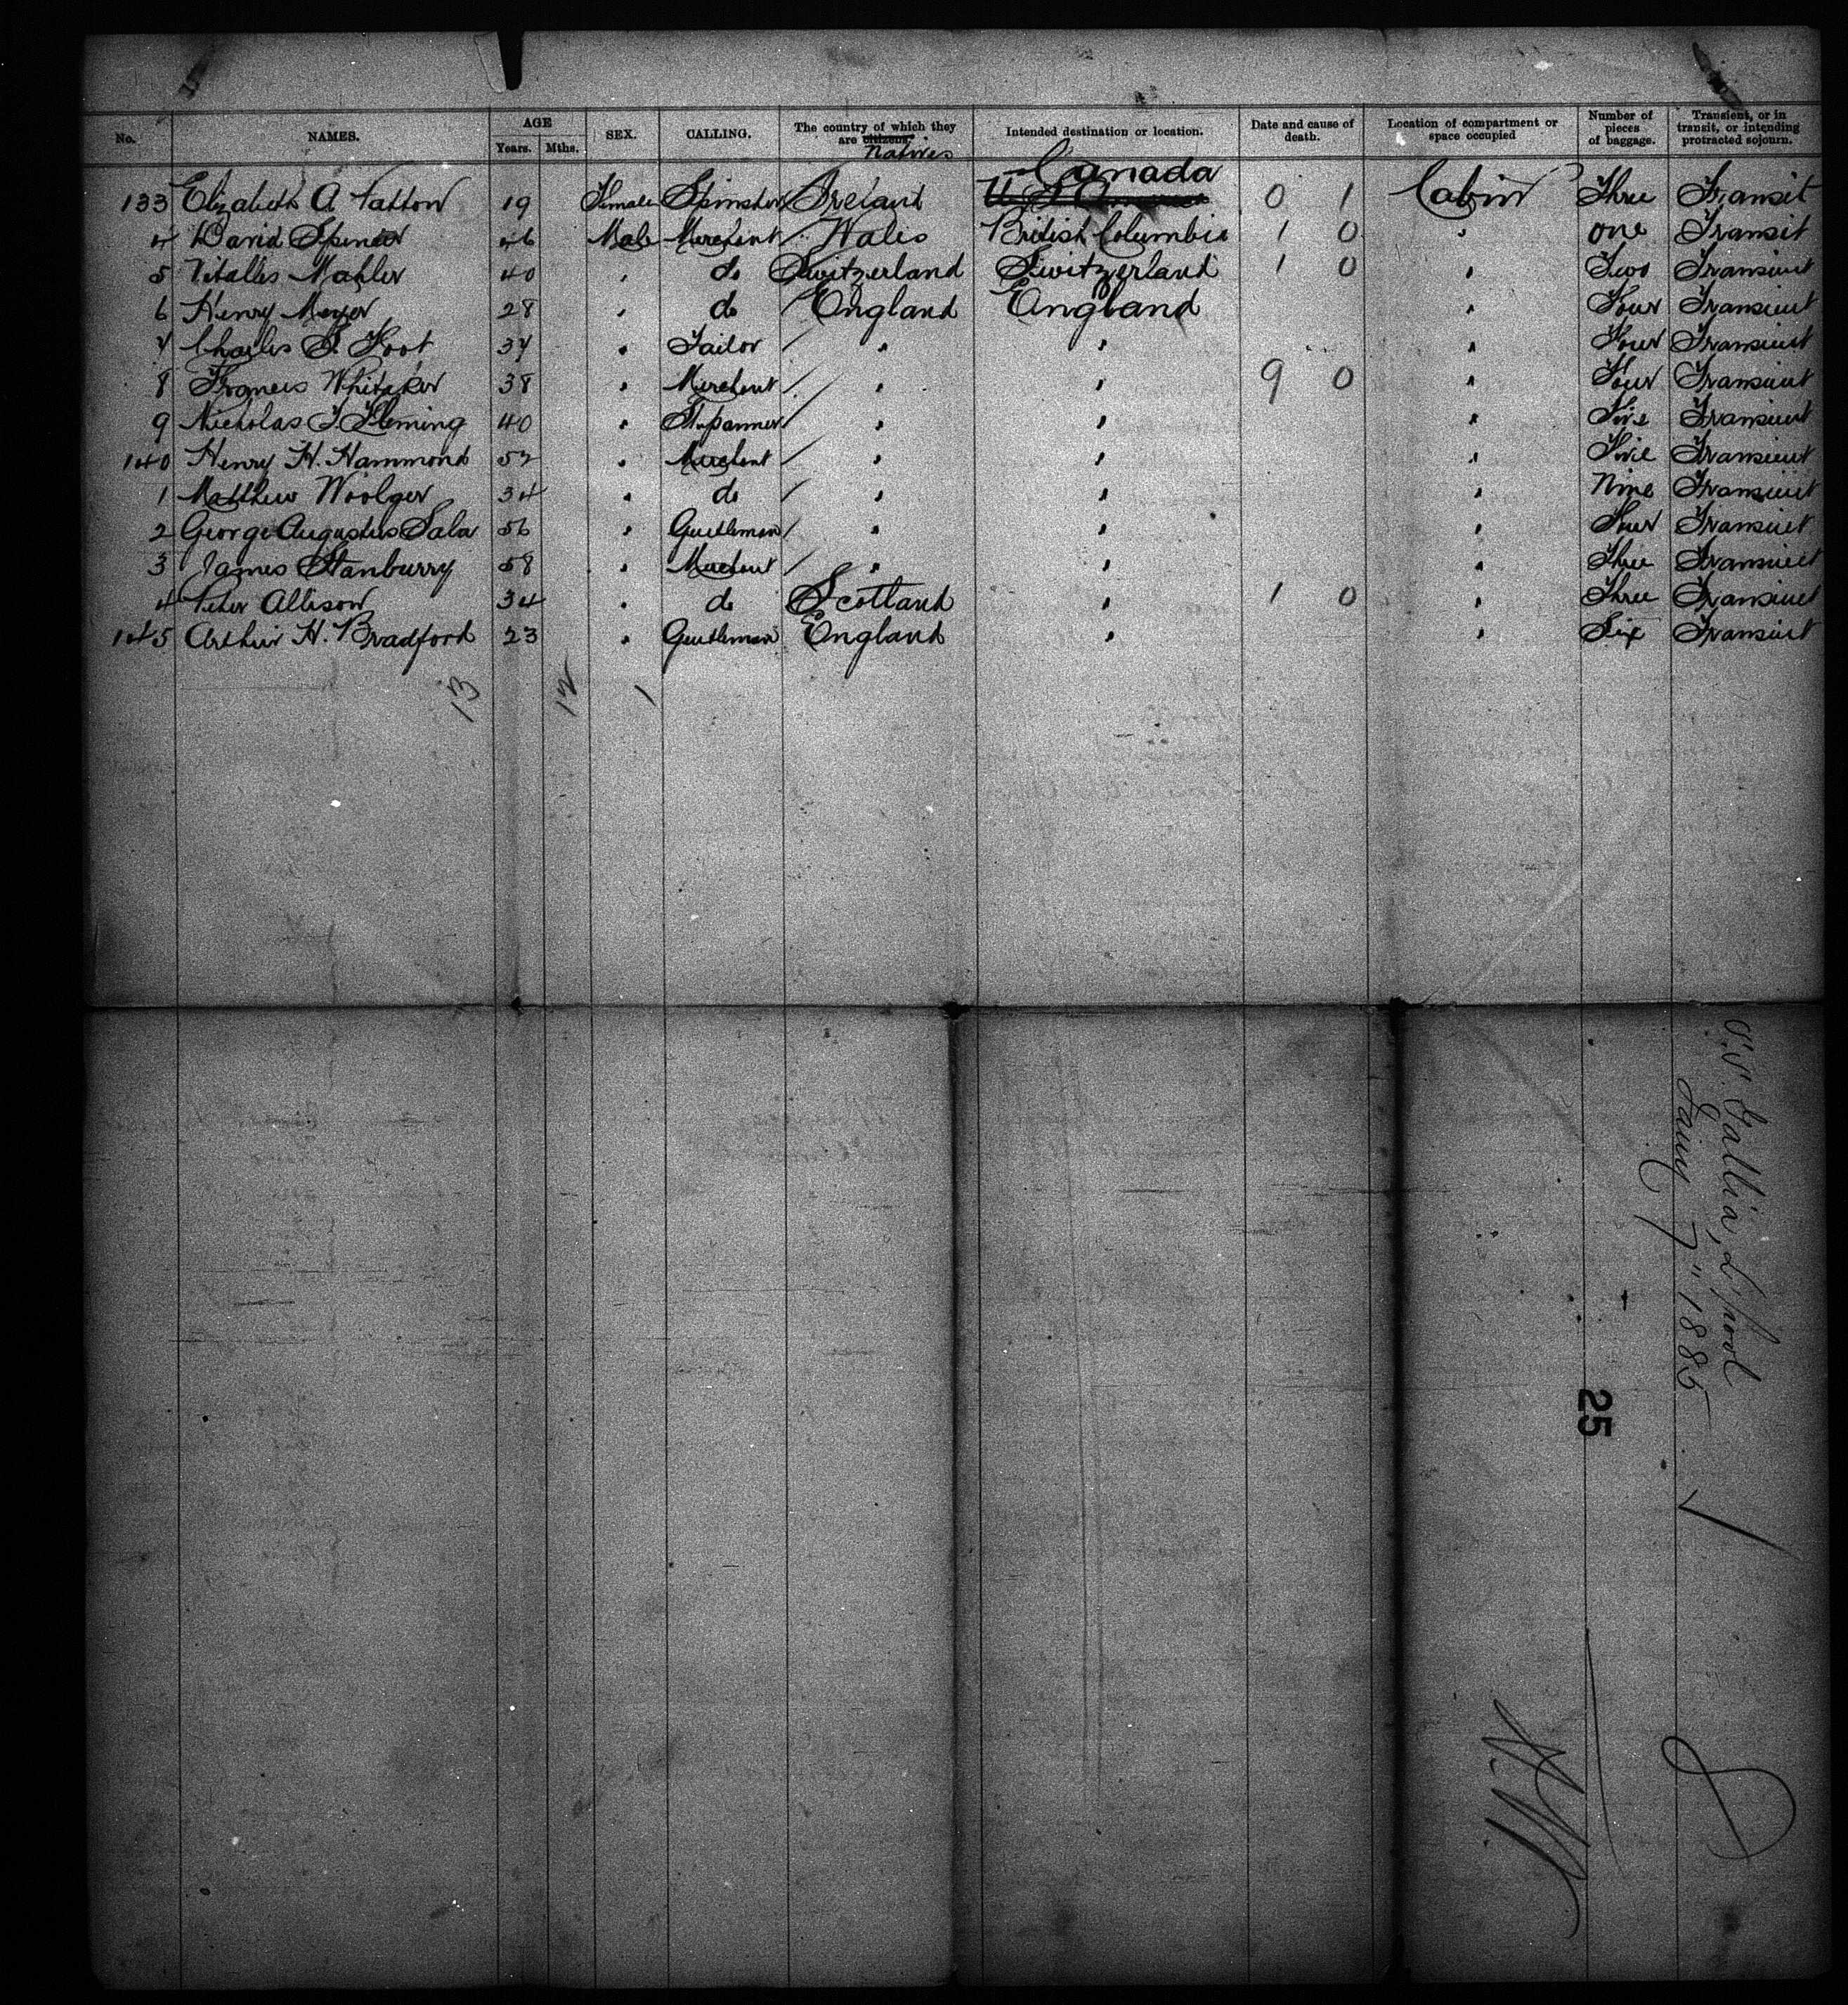 No. NAMES. AGE Years. Mths. SEX. CALLING. The country of which they are citizens. Natives Intended destination or location. Date and cause of death. Location of compartment or space occupied Number of pieces of baggage. Transient, or in transit, or intending protracted sojourn.
Canada
133 Elizabeth A Patton 19 Female Spinster Ireland U S 0 1 Cabin Three Transit
4 David Spencer 46 Male Merchant Wales British Columbia 1 0 " one Transit
5 Vitalles Mahler 40 " do Switzerland Switzerland 1 0 " Two Transient
6 Henry Meyer 28 " do England England " Four Transient
7 Charles F. Foot 37 " Tailor " " " Four Transient
8 Francis Whitaker 38 " Merchant " " 9 0 " Four Transient
9 Nicholas J. Fleming 40 " " " " Five Transient
140 Henry H. Hammond 52 " Merchent " " " Five Transient
1 Matthew Woolger 34 " do " " " Nine Transient
2 George Augustus Sala 56 " Gentleman " " " Four Transient
3 James Stanburry 58 " Merchent " " " Three Transient
4 Peter Allison 34 " do Scotland " 1 0 " Three Transient
145 Arthur H. Bradford 23 " Gentleman England " " Six Transient
13 12 1
S.S. Gallia, L'pool
Jany 7" 1885
25